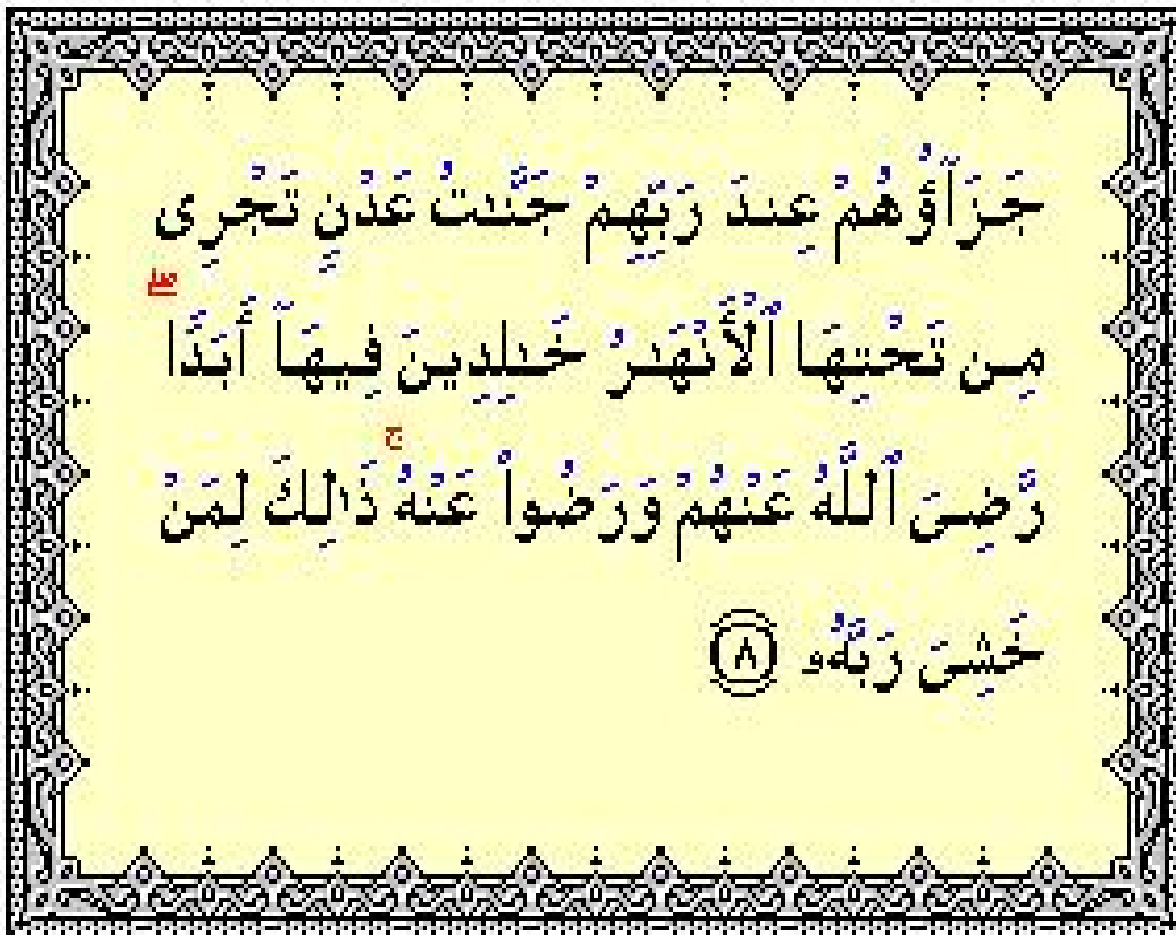 جَزَآؤُهُمْ عِندَ رَبِّهِمْ جَنَّـٰتُ عَدْنٍ تَجْرِى
مِن تَحْتِهَا ٱلْأَنْهَـٰرُ خَـٰلِدِينَ فِيهَآ أَبَدًا ۖ
رَّضِىَ ٱللَّهُ عَنْهُمْ وَرَضُوا۟ عَنْهُ ۚ ذَٰلِكَ لِمَنْ
خَشِىَ رَبَّهُۥ ٨